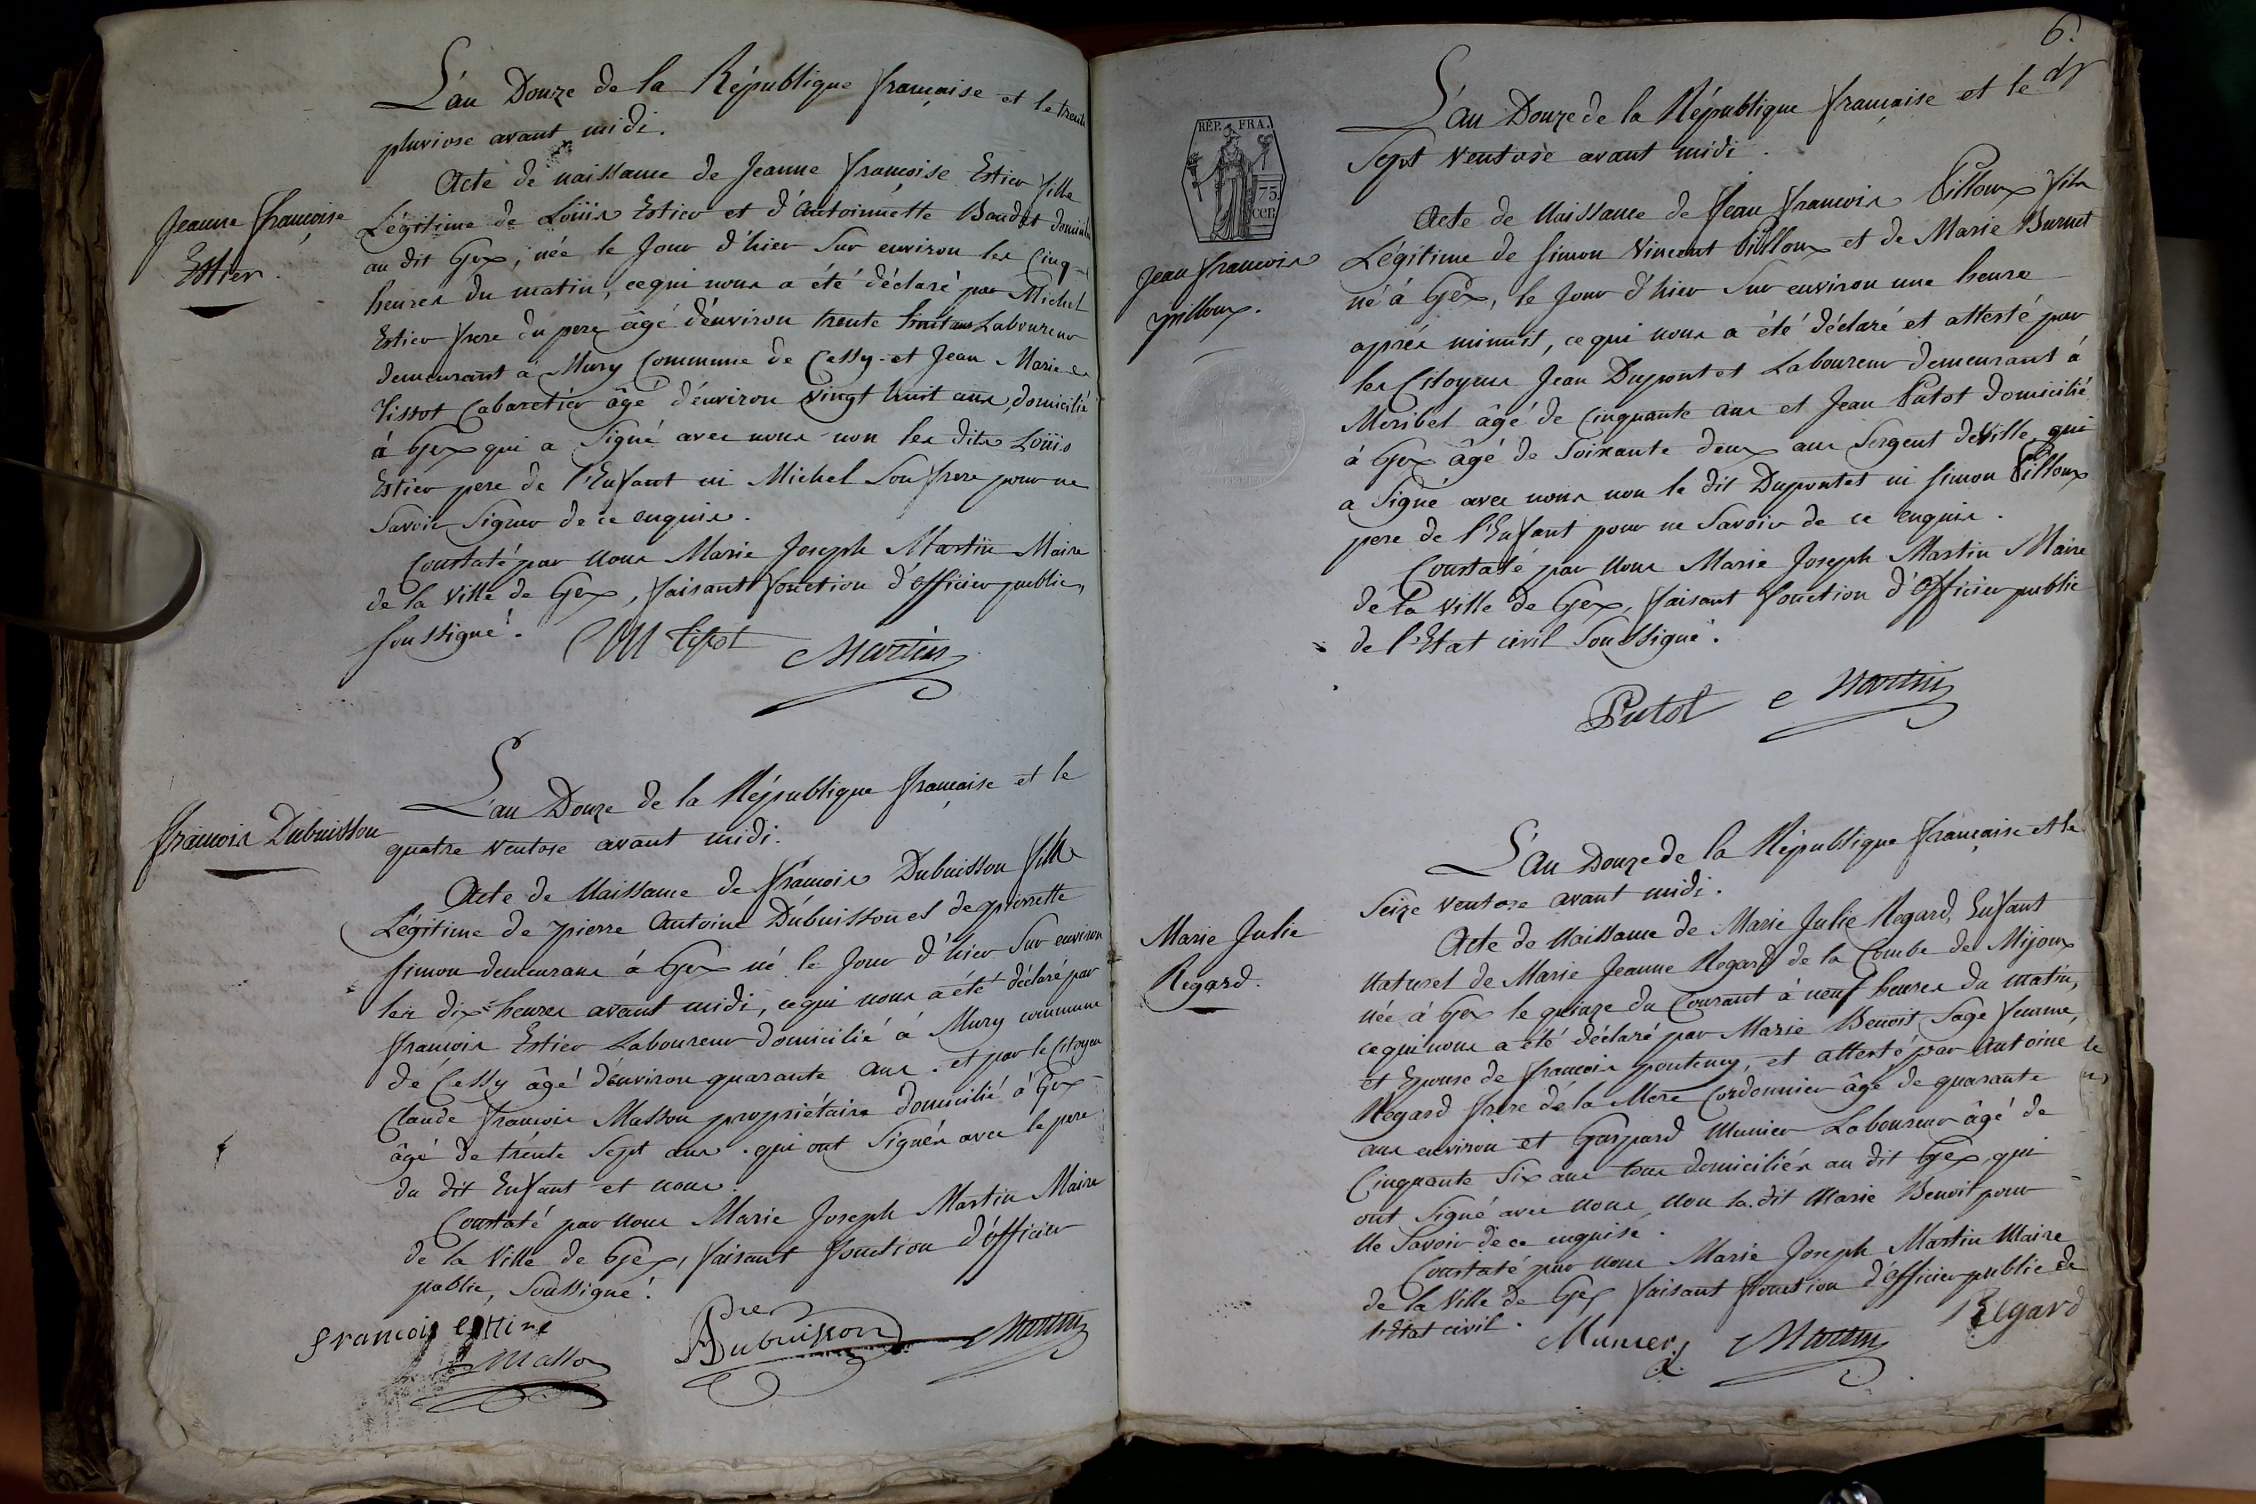 L'an Douze de la République française et le trente
pluviose avant midi.
Jeanne françoise
Estier.
Acte de naissance de Jeanne françoise Estier fille
Légitime de Loüis Estier et d'Antoinette Baudet
au dit Gex, née le Jour d'hier Sur environ les Cinq
heures du matin, ce qui nous a été déclaré par Michel
Estier frere du pere âgé d'environ trente huit ans Laboureur
demeurant à Mury Commune de Cessy et Jean Marie
Tissot Cabaretier âgé d'environ vingt huit ans, domicilié
à Gex qui a Signé avec nous non les dits Loüis
Estier pere de l'Enfant ni Michel Son frere pour ne
Savoir Signer de ce enquis.
Constaté par Nous Marie Joseph Martin Maire
de la Ville de Gex, faisant fonction d'officier public,
Soussigné.
Tissot Martin
L'an Douze de la République française et le
quatre ventose avant midi.
françois Dubuisson
Acte de Naissance de françois Dubuisson fils
Légitime de pierre Antoine Dubuisson et de pierrette
Simon demeurans à Gex né le Jour d'hier Sur environ
les dix heures avant midi, ce qui nous a été déclaré par
françois Estier Laboureur domicilié à Mury commune
de Cessy âgé d'environ quarante ans. et par le Citoyen
Claude françois Masson propriétaire domicilié à Gex
âgé de trente Sept ans. qui ont Signés avec le pere
du dit Enfant et nous.
Constaté par Nous Marie Joseph Martin Maire
de la Ville de Gex, faisant fonction d'officier
public, Soussigné.
francois
Masson Dubuisson Martin
6.
L'an Douze de la République française et le dix
Sept Ventose avant midi.
RÉP. FRA.
75
CEN.
Jean francois
pilloux.
Acte de Naissance de Jean francois Pilloux fils
Légitime de Simon Vincent Pilloux et de Marie Burnet
né à Gex, le Jour d'hier Sur environ une heure
après minuit, ce qui nous a été déclaré et attesté par
les Citoyens Jean Dupontet Laboureur demeurant à
Meribel âgé de Cinquante ans et Jean Putot domicilié
à Gex âgé de Soixante deux ans Sergent de Ville, qui
a Signé avec nous non le dit Dupontet ni Simon Pilloux
pere de l'Enfant pour ne Savoir de ce enquis.
Constaté par Nous Marie Joseph Martin Maire
de la Ville de Gex, faisant fonction d'officier public
de l'Etat civil Soussigné.
Putot Martin
L'An Douze de la République française et le
Seize ventose avant midi.
Marie Julie
Regard.
Acte de Naissance de Marie Julie Regard, Enfant
Naturel de Marie Jeanne Regard de la Combe de Mijoux
née à Gex le quinze du Courant à neuf heures du matin,
ce qui nous a été déclaré par Marie Benoit Sage femme,
et Epouse de francois, et attesté par Antoine
Regard frere de la Mere Cordonnier âgé de quarante
ans environ et Gaspard Munier Laboureur âgé de
Cinquante Six ans tous domiciliés au dit Gex, qui
ont Signé avec nous, non la dit Marie Benoit pour
Ne Savoir de ce enquise.
Constaté par Nous Marie Joseph Martin Maire
de la Ville de Gex faisant fonction d'officier public de
l'Etat civil.
Munier Martin Regard